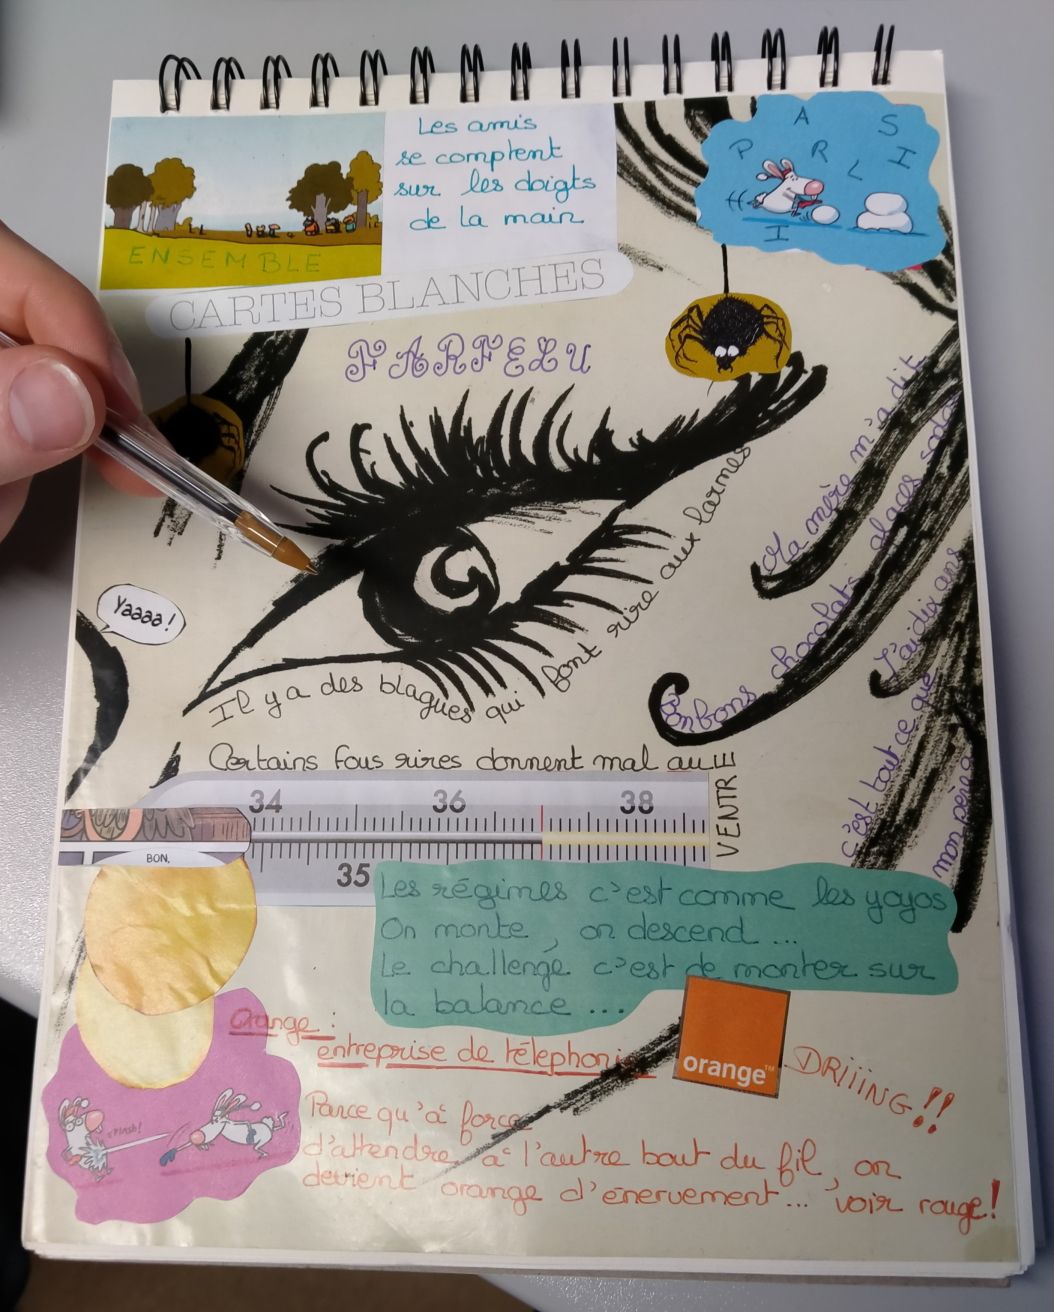 Les amis
se comptent
sur les doigts
de la main
PARLSII
ENSEMBLE
CARTES BLANCHES
FARFELU
Ma mère m'a dit
Bonbons chocolats glaces sodas
C'est tout ce que
J'ai dix ans
mon père
Yaaaa !
Il y a des blagues qui font rire aux larmes
Certains fous rires donnent mal au
VENTRE
34 36 38
35
BON,
Les régimes c'est comme les yoyos
On monte, on descend ...
Le challenge c'est de monter sur
la balance ...
Orange :
entreprise de télephonie
orange™
DRIIING !!
Parce qu'à force
d'attendre à l'autre bout du fil, on
devient orange d'énervement... voir rouge!